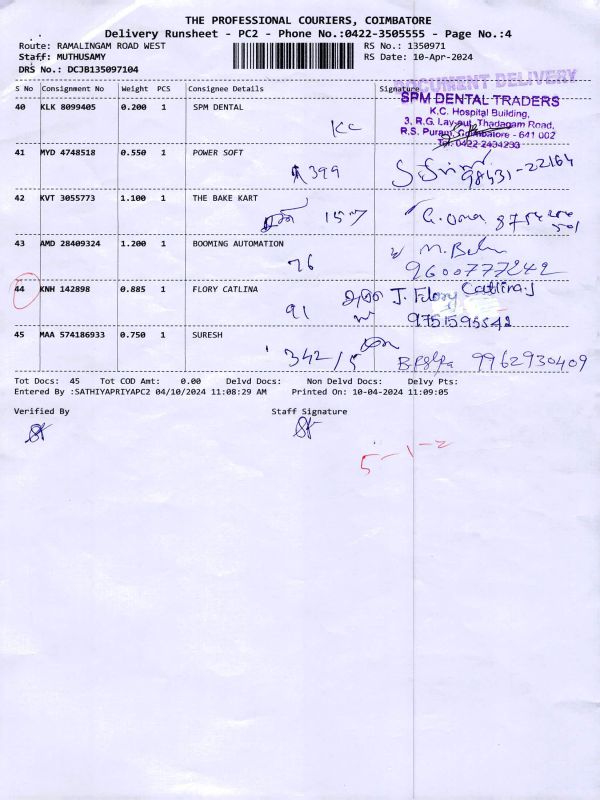 THE PROFESSIONAL COURIERS, COIMBATORE
Delivery Runsheet - PC2 - Phone No.:0422-3505555 - Page No.:4
Route: RAMALINGAM ROAD WEST RS No.: 1350971
Staff: MUTHUSAMY RS Date: 10-Apr-2024
DRS No.: DCJB135097104
DOCUMENT DELIVERY
S No Consignment No Weight PCS Consignee Details Signature
40 KLK 8099405 0.200 1 SPM DENTAL
KC
SPM DENTAL TRADERS
K.C. Hospital Building,
3, R.G. Lay-out, Thadagam Road,
R.S. Puram, Coimbatore - 641 002
Tel: 0422 2434233
41 MYD 4748518 0.550 1 POWER SOFT
399 98431-22164
42 KVT 3055773 1.100 1 THE BAKE KART
43 AMD 28409324 1.200 1 BOOMING AUTOMATION
76
9600777242
44 KNH 142898 0.885 1 FLORY CATLINA
91 J. Flory Catlina.J
9751595542
45 MAA 574186933 0.750 1 SURESH
342/5 9962930409
Tot Docs: 45 Tot COD Amt: 0.00 Delvd Docs: Non Delvd Docs: Delvy Pts:
Entered By :SATHIYAPRIYAPC2 04/10/2024 11:08:29 AM Printed On: 10-04-2024 11:09:05
Verified By Staff Signature
5-1-2